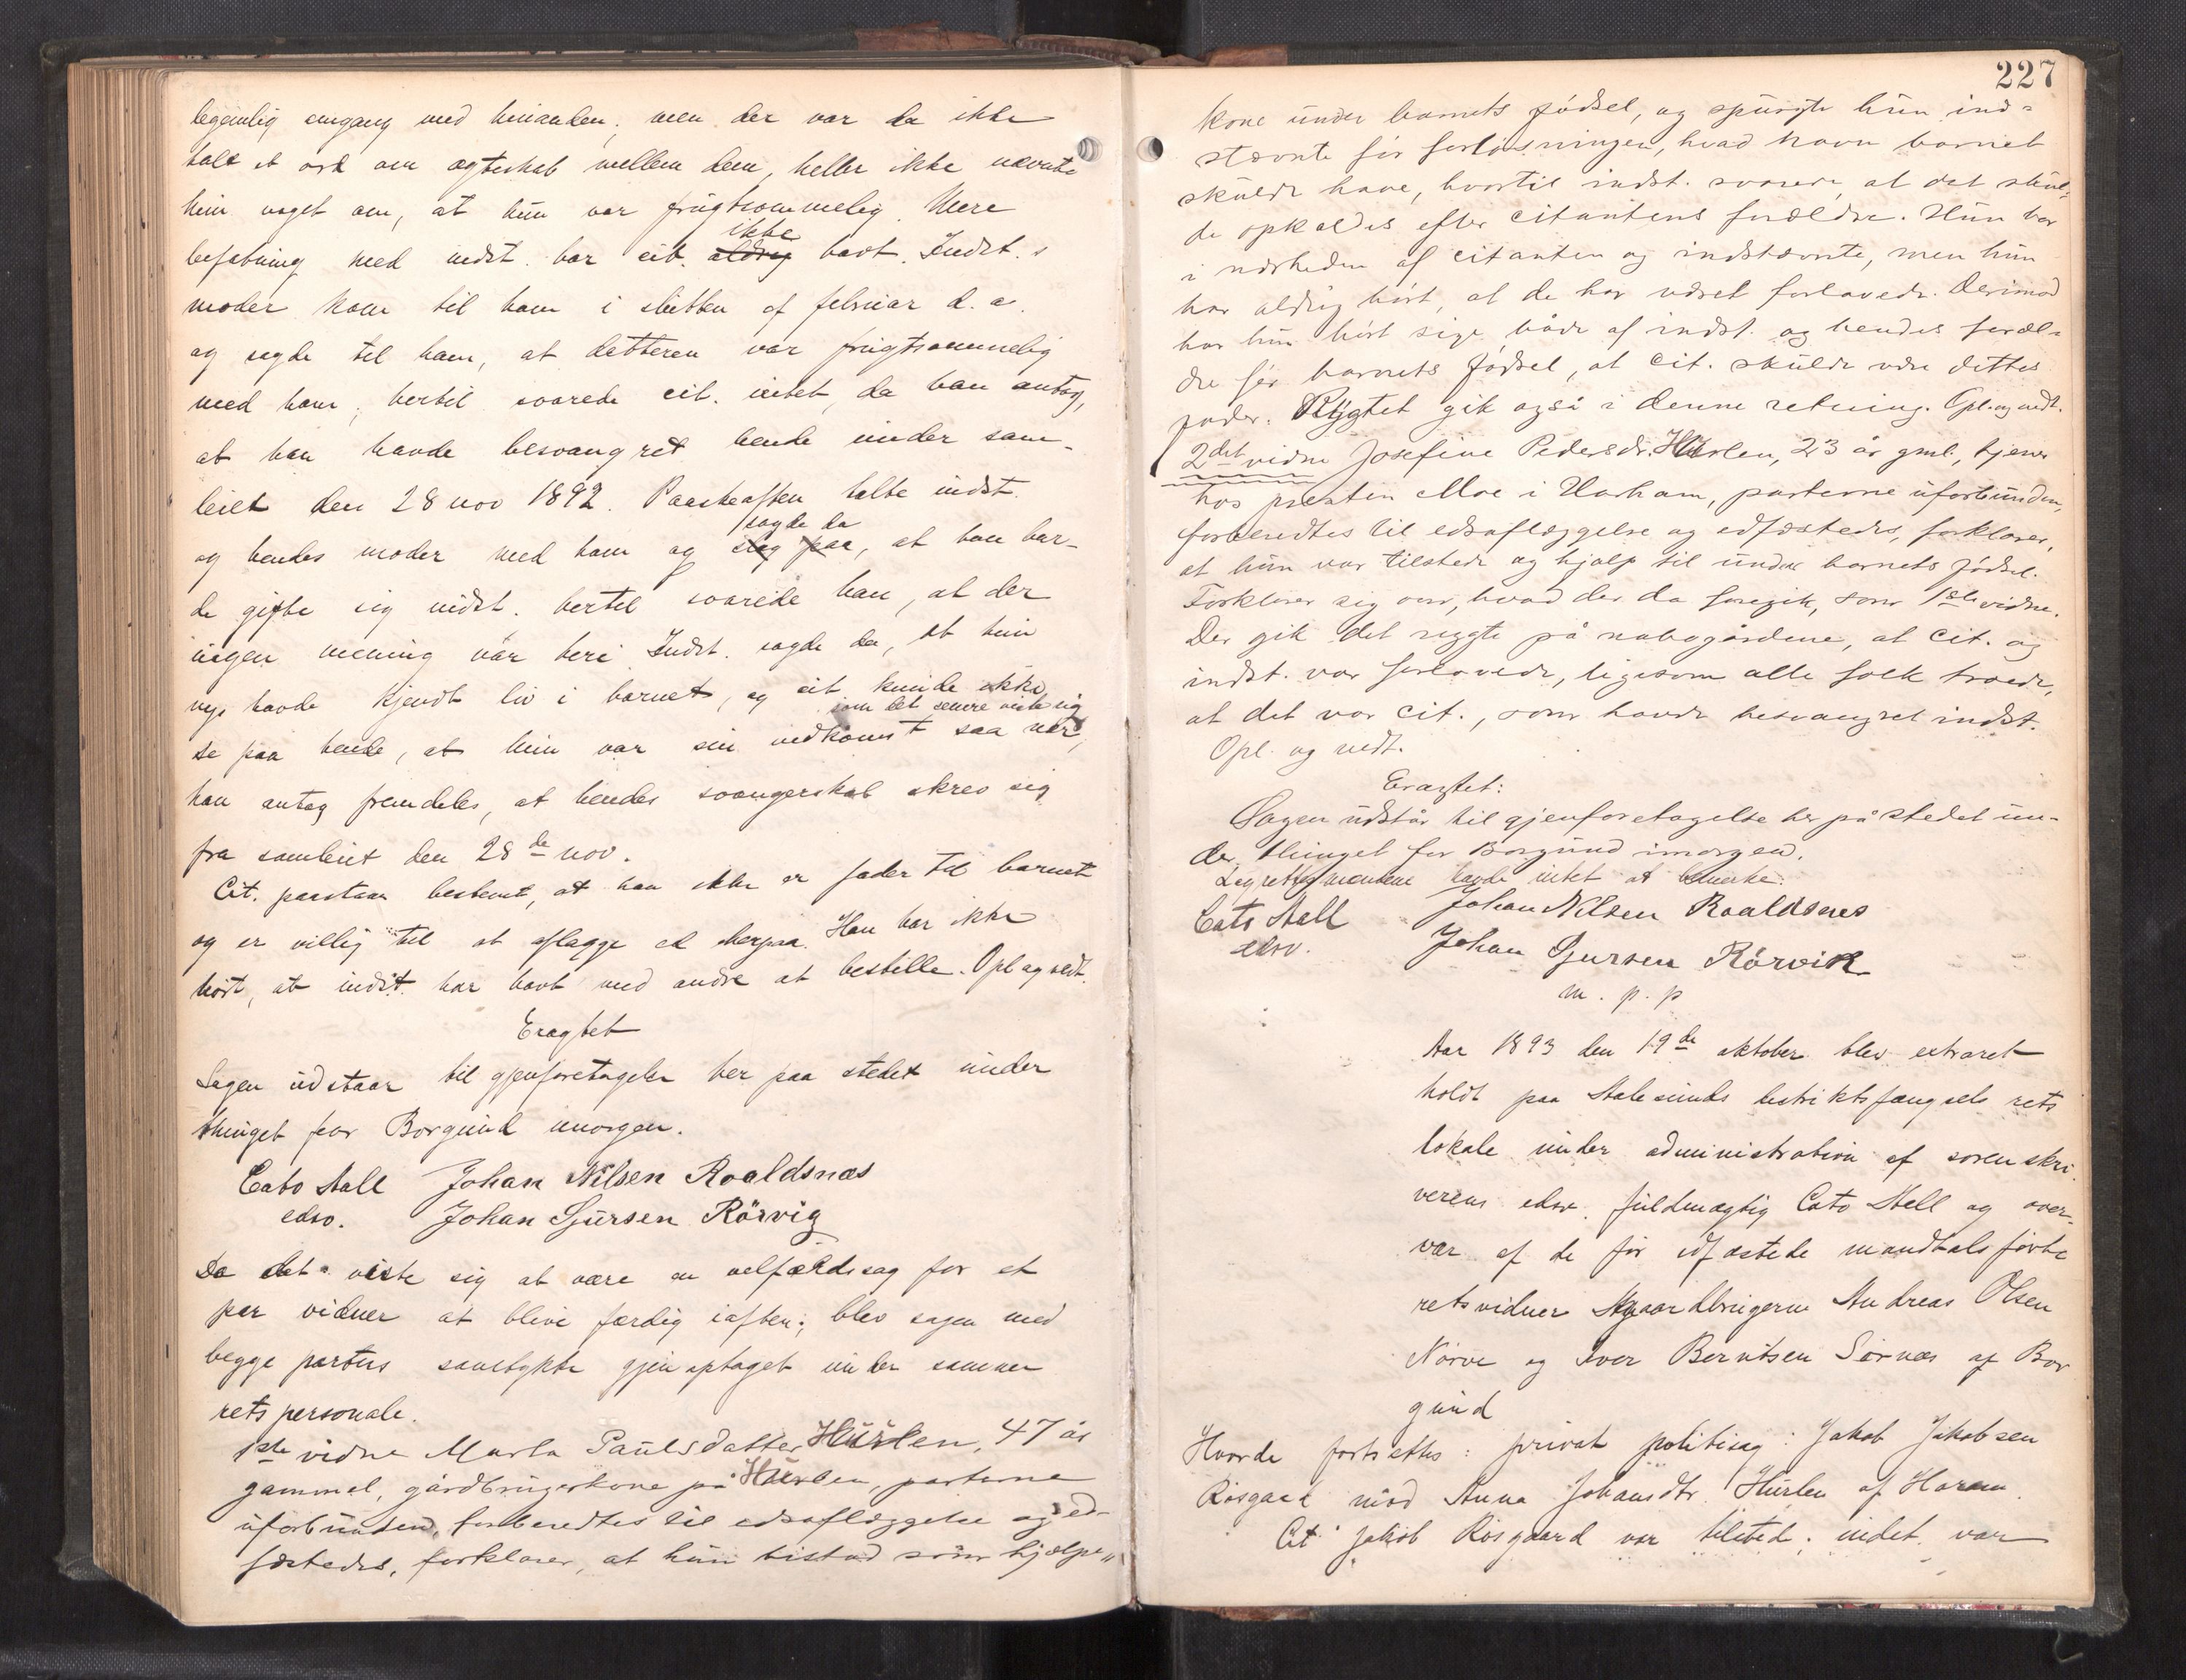 legemlig omgang med hinanden, men der var da ikke
talt et ord om ægteskab mellem dem, heller ikke nævnte
hun noget om, at hun var frugtsommelig. Mere
befatning med indst. har cit. aldrig ikke havt. Indst.s
moder kom til ham i slutten af februar d. a.
og sagde til ham, at datteren var frugtsommelig
med ham, hertil svarede cit. intet, da han antog,
at han havde besvangret hende under sam-
leiet den 28 nov 1892. Paaskeaften talte indst.
og hendes moder med ham og sagde da, at han bur-
de gifte sig indst. hertil svarede han, at der
ingen mening var heri. Indst. sagde da, at hun
nys havde kjendt liv i barnet, og cit. kunde ikke
som det senere viste sig
se paa hende, at hun var sin nedkomst saa nær,
han antog fremdeles, at hendes svangerskab skrev sig
fra samleiet den 28de nov.
Cit. paastaar bestemt, at han ikke er fader til barnet
og er villig til at aflægge ed herpaa. Han har ikke
hört, at indst. har havt med andre at bestille. Opl og vedt.
Eragtet
Sagen udstaar til gjenforetagelse her paa stedet under
thinget for Borgund imorgen.
Cato Aall Johan Nilsen Roaldsnæs
edsv. Johan Sjursen Rörvig
Da det viste sig at være en velfærdssag for et
par vidner at blive færdig iaften, blev sagen med
begge parters samtykke gjenoptaget under samme
rets personale.
1ste vidne Marta Paulsdatter Hurlen, 47 år
gammel, gårdbrugerkone på Hurlen, parterne
uforbunden, forberedtes til edsaflæggelse og ed-
fæstedes, forklarer, at hun bistod som hjælpe„
227
kone under barnets födsel, og spurgte hun ind=
stævnte för forlösningen, hvad navn barnet
skulde have, hvortil indst. svarede, at det skul-
de opkaldes efter citantens forældre. Hun bor
i nærheden af citanten og indstævnte, men hun
har aldrig hört, at de har været forlovede. Derimod
har hun hört sige både af indst. og hendes foræl-
dre för barnets födsel, at cit. skulde være dettes
fader. Rygtet gik også i denne retning. Opl. og vedt.
2det vidne Josefine Pedersdr. Hurlen, 23 år gml., tjener
hos presten Moe i Harham, parterne uforbunden,
forberedtes til edsaflæggelse og edfæstedes, forklarer,
at hun var tilstede og hjalp til under barnets födsel.
Forklarer sig om, hvad der da foregik, som 1ste vidne.
Der gik det rygte på nabogårdene, at cit. og
indst. var forlovede, ligesom alle folk troede,
at det var cit., som havde besvangret indst.
Opl. og vedt.
Eragtet:
Sagen udstår til gjenforetagelse her på stedet un-
der thinget for Borgund imorgen.
Lagrettesmændene havde intet at bemerke.
Cato Aall Johan Nilsen Roaldsnes
edsv. Johan Sjursen Rörvik
m. p. p
Aar 1893 den 19de oktober blev extraret
holdt paa Aalesunds distriktsfængsels rets
lokale under administration af sorenskri
verens edsv. fuldmægtig Cato Aall og over-
vær af de för edfæstede mandtalsförte
retsvidner gaardbrugerne Andreas Olsen
Nörve og Iver Berntsen Sörnæs af Bor
gund
Hvorda fortsættes: privat politisag: Jakob Jakobsen
Rösgaard mod Anna Johansdtr. Hurlen af Haram.
Cit. Jakob Rösgaard var tilsted; indst. var